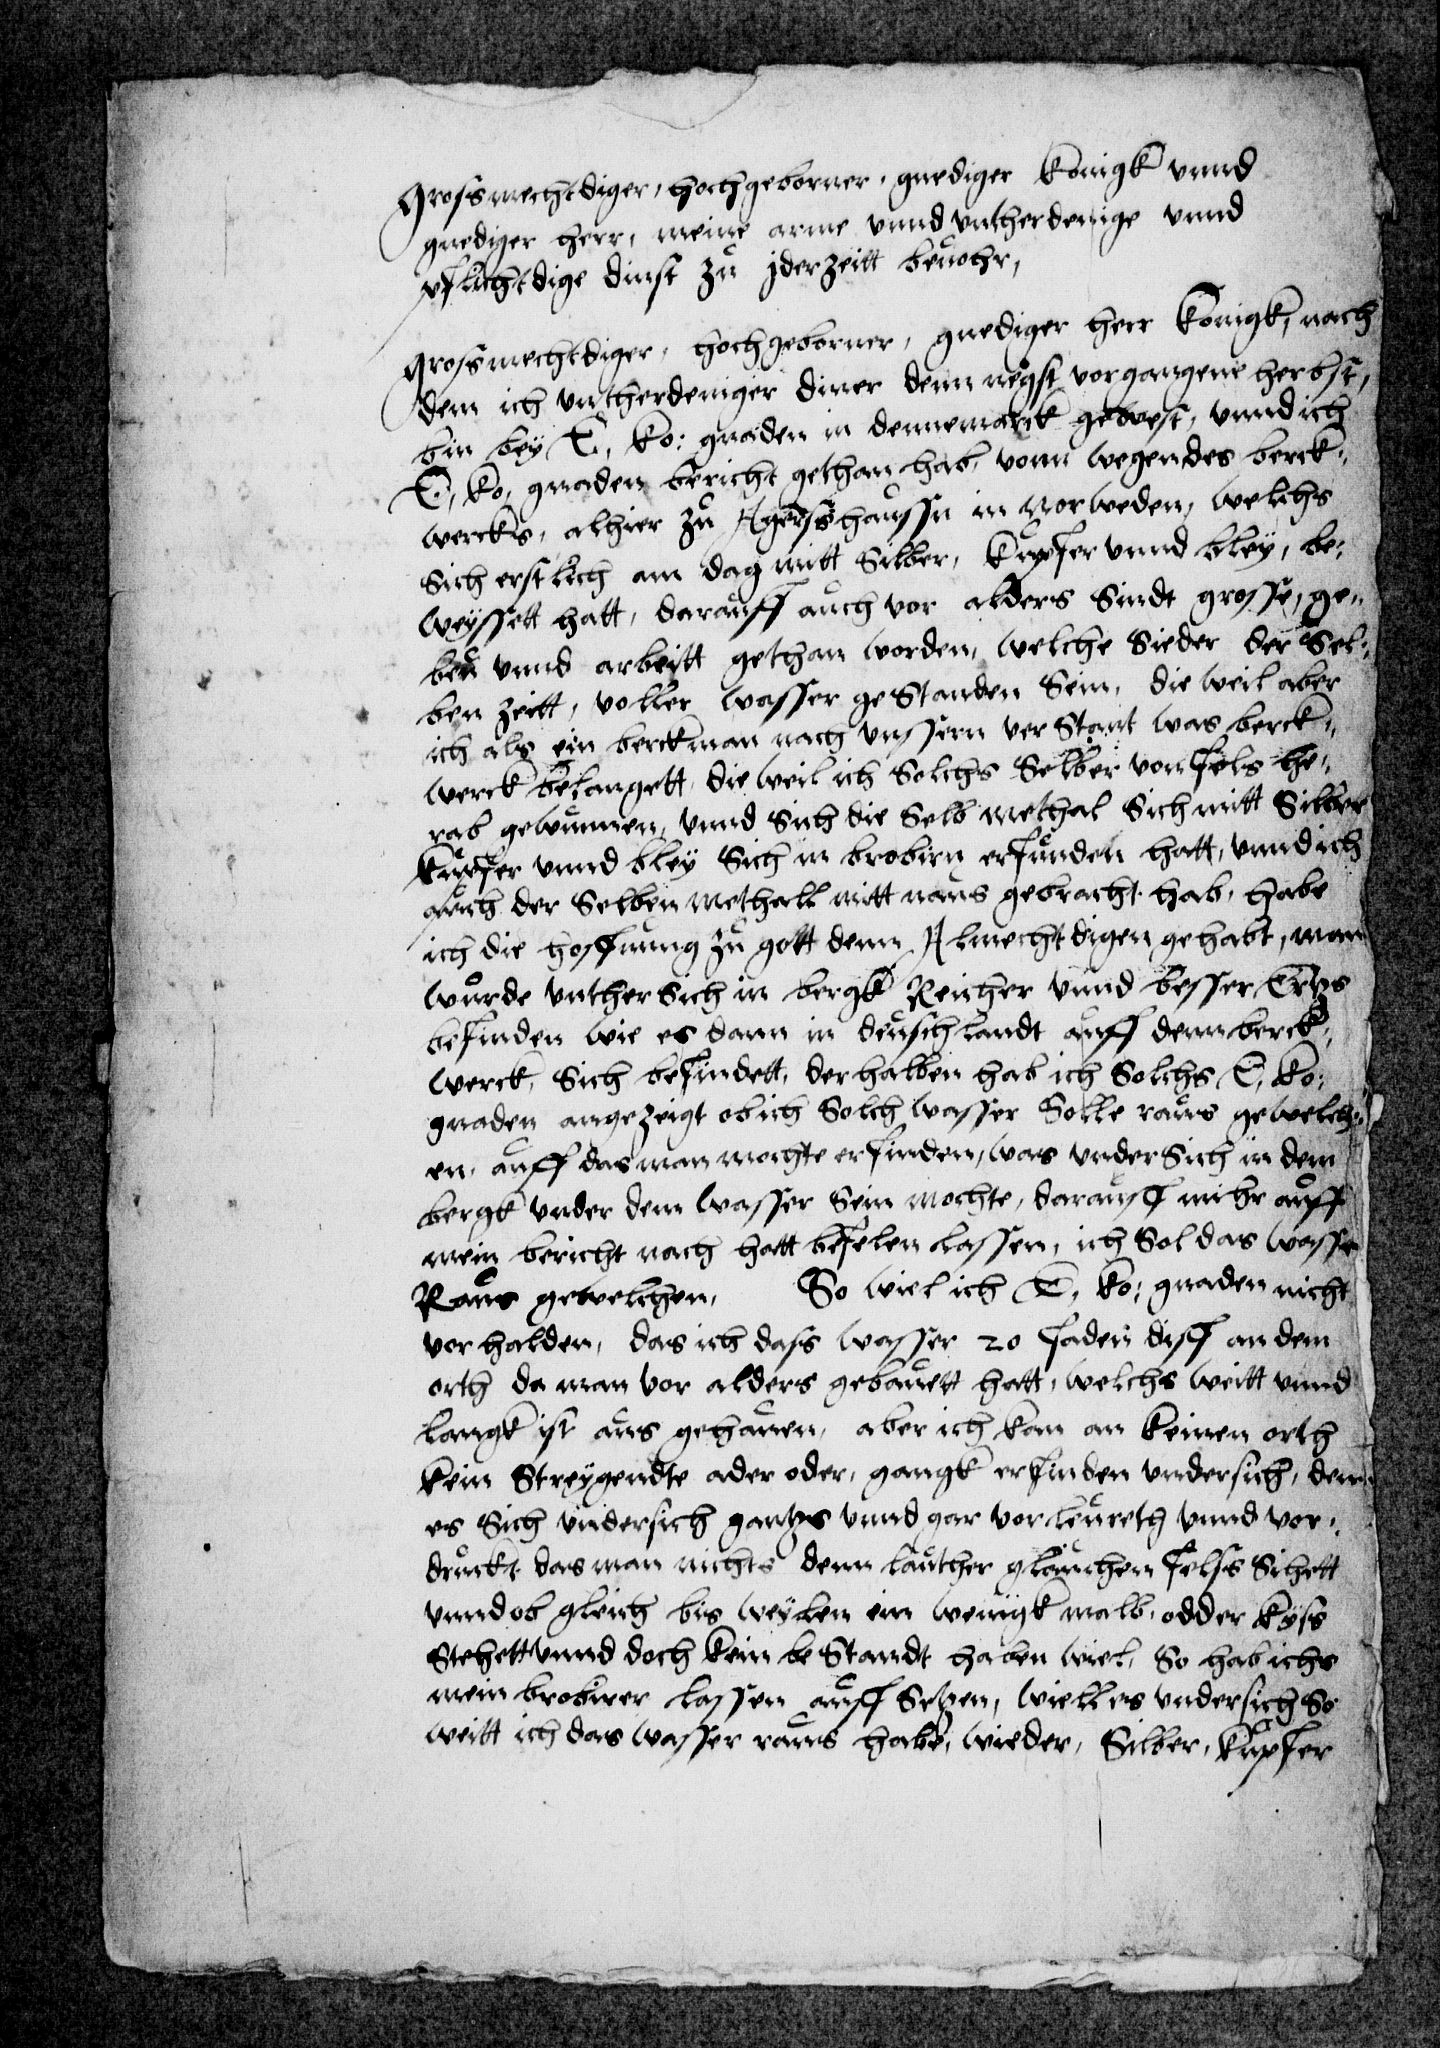 Grossmechtdiger, hochgeborner, gnediger Konigk vnnd
gnediger herr, meine arme vnnd vntherdenige vnnd
pflichtdige dinst zu jderzeitt beuohr,
Grossmechtdiger, hochgeborner, gnediger herr Konigk, nach
dem ich vntherdeniger diner denn negst vorgangene herbst,
bin bey E, Ko: gnaden in dennemarck gewest, vnnd ich
E, Ko, gnaden bericht gethan hab, vonn wegen des berck-
wercks, alhier zu Agersshaussn in Norweden, welchs
Sich erstlich am dag mitt Silber, Kupfer vnnd bley, be-
weyssett hatt, darauff auch vor alders Sindt grosse, ge-
beu vnnd arbeitt gethan worden, welche Sieder der Sel-
ben zeitt, voller wasser geStanden Sein, die weil aber
ich als ein berckman nach vnssern verStant was berck-
werck belangett, die weil ich Solchs Selber von fels he-
rab gewunnen, vnnd Sich die Selb methal Sich mitt Silber
Kupfer vnnd bley Sich in brobirn erfunden hatt, vnnd ich
auch der Selben methall mitt naus gebracht hab, habe
ich die hoffnung zu gott denn Almechtdigen gehabt, man
wurde vnther Sich in bergk Reicher vnnd besser Ertzs
befinden wie es dann in deuschlandt auff denn berck-
werck, Sich befindett, derhalben hab ich Solchs E, Ko:
gnaden angezeigt ob ich Solch wasser Solle raus gewelch-
en, auff das man mochte erfinden, was vnder Sich in dem
bergk vnder dem wasser Sein mochte, darauff mihr auff
mein bericht nach hatt befelen lassen, ich Sol das wasser
Raus gewelchen, So wiel ich E, Ko: gnaden nicht
vorhalden, das ich dass wasser 20 faden diff an dem
orth da man vor alders gebauett hatt, welchs weitt vnnd
langk ist aus gehauen, aber ich kan an keinen orth
kein Streygendte ader oder, gangk erfinden vndersich, denn
es Sich vndersich gantzs vnnd gar vorleureth vnnd vor-
druckt das man nichts denn lauther glauchen felss Sihett
vnnd ob gleich bis weylen ein wenigk malb, odder Kyss
Stehett vnnd doch kein beStandt haben wiel, So hab ichs
mein brobirer lassen auff Setzen, wiell es vndersich So
weitt ich das wasser raus habe, wieder, Silber, Kupfer